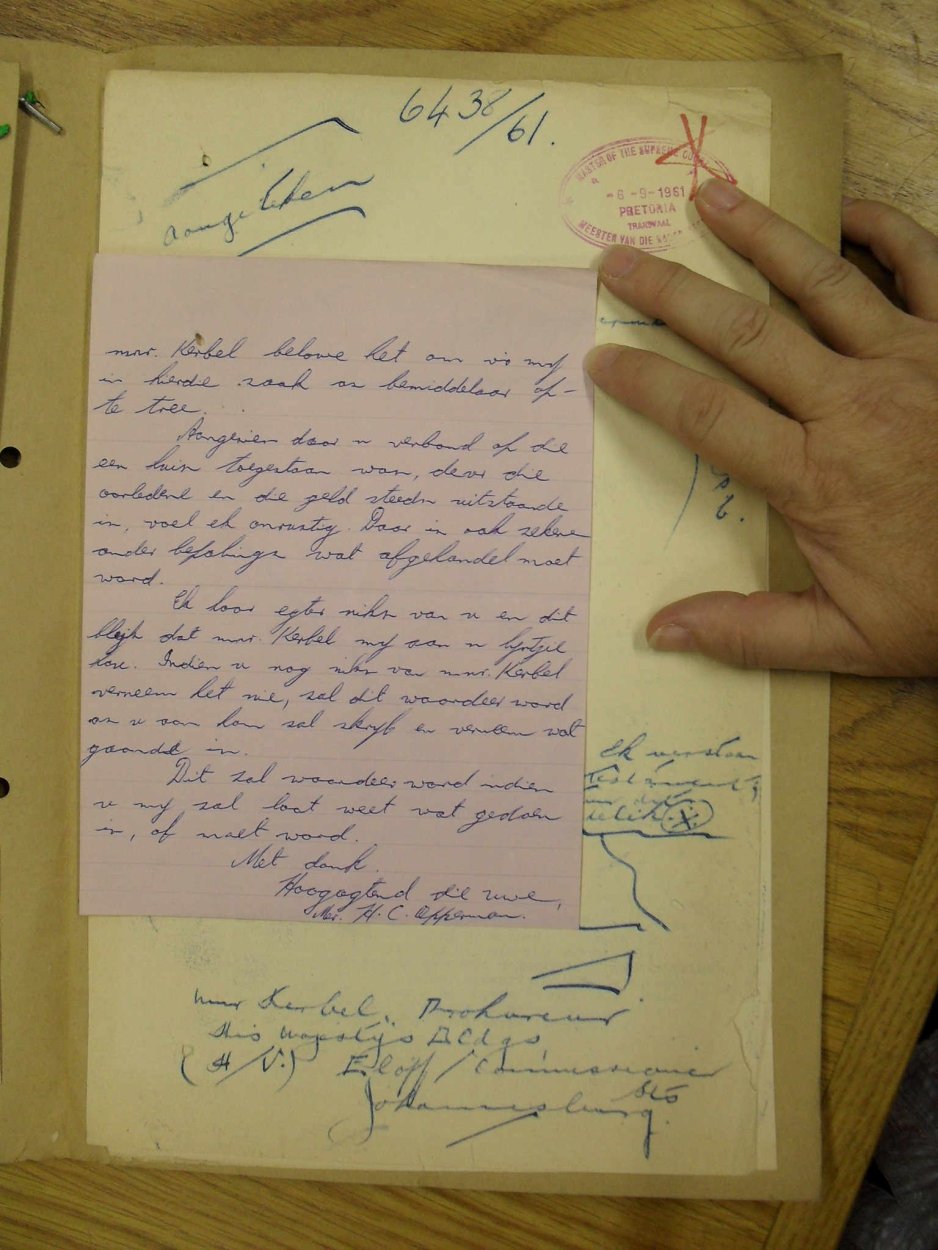 6438/61.
aangeteken
MASTER OF THE SUPREME COU
-6-9-1961
PRETORIA
TRANSVAAL
MEESTER VAN DIE
mnr. Kerbel belowe het om vir my
in hierdie saak as bemiddelaar op-
te tree.
Aangesien daar 'n verband op die
een huis toegestaan was, deur die
oorledene en die geld steeds uitstaande
is, voel ek onrustig. Daar is ook sekere
ander bepalings wat afgehandel moet
word.
Ek hoor egter niks van u en dit
blyk dat mnr. Kerbel my aan 'n lyntjie
hou. Indien u nog niks van mnr. Kerbel
verneem het nie, sal dit waardeer word
as u aan hom sal skryf en verneem wat
gaande is.
Dit sal waardeer word indien
u my sal laat weet wat gedoen
is, of moet word.
Met dank.
Hoogagtend die uwe,
Mev. H. C. Opperman.
Ek verstaan
mnr Kerbel, Prokureur
His Majestys Bldgs,
(H/V.) Eloff / Commissioner
Sts
Johannesburg.